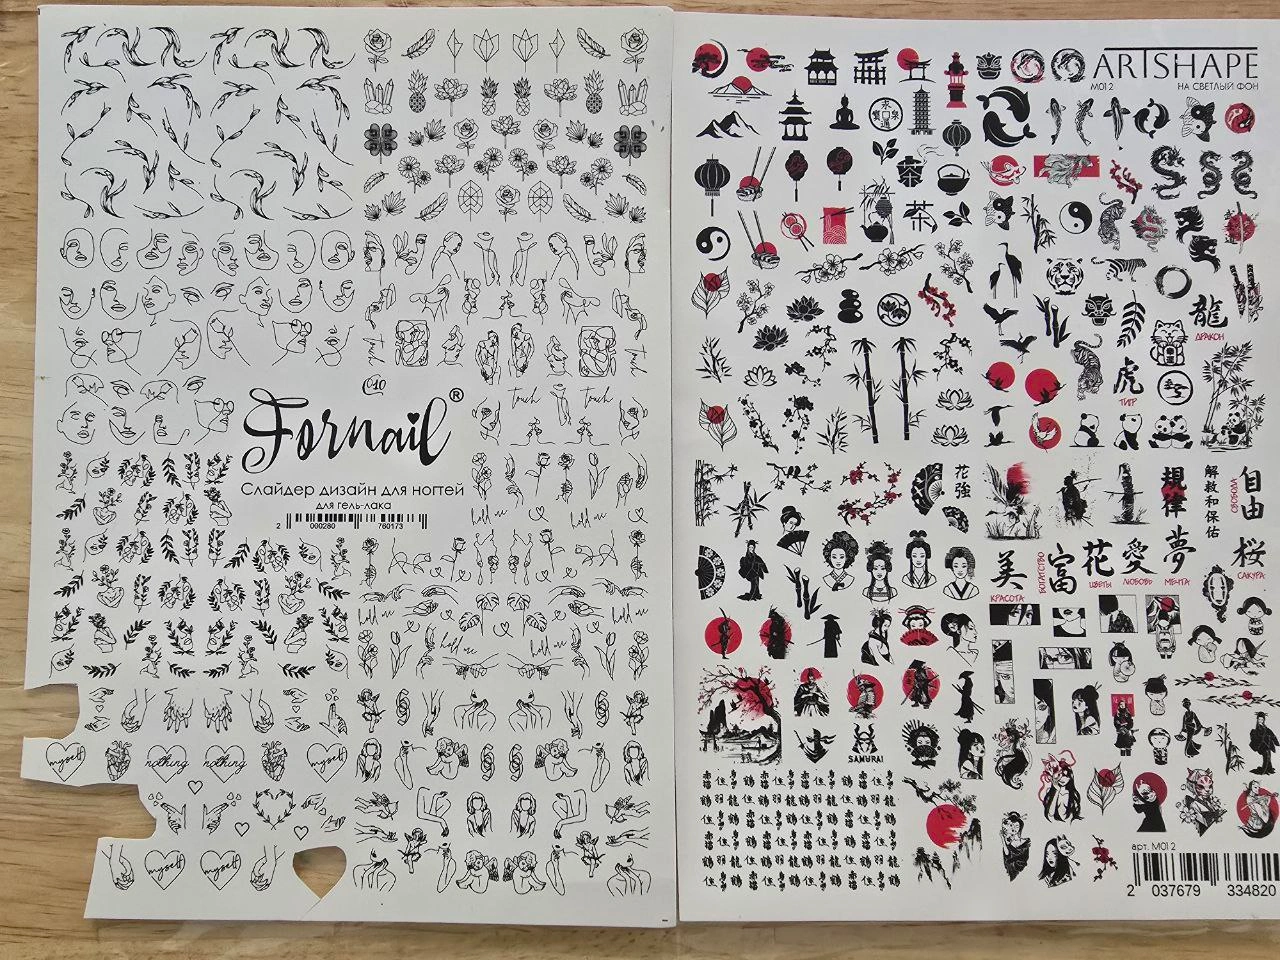 010
Fornail®
Слайдер дизайн для ногтей
для гель-лака
2 000280 760173
touch
touch
touch
touch
hold me
hold me
hold me
hold me
hold me
hold me
myself
nothing
nothing
myself
myself
myself
ARTSHAPE
M012
НА СВЕТЛЫЙ ФОН
茶
茶
龍
ДРАКОН
虎
ТИГР
花強
規律
解救和保佑
自由
СВОБОДА
美
КРАСОТА
富
БОГАТСТВО
花
ЦВЕТЫ
愛
ЛЮБОВЬ
夢
МЕЧТА
桜
САКУРА
SAMURAI
арт. M012
2 037679 334820